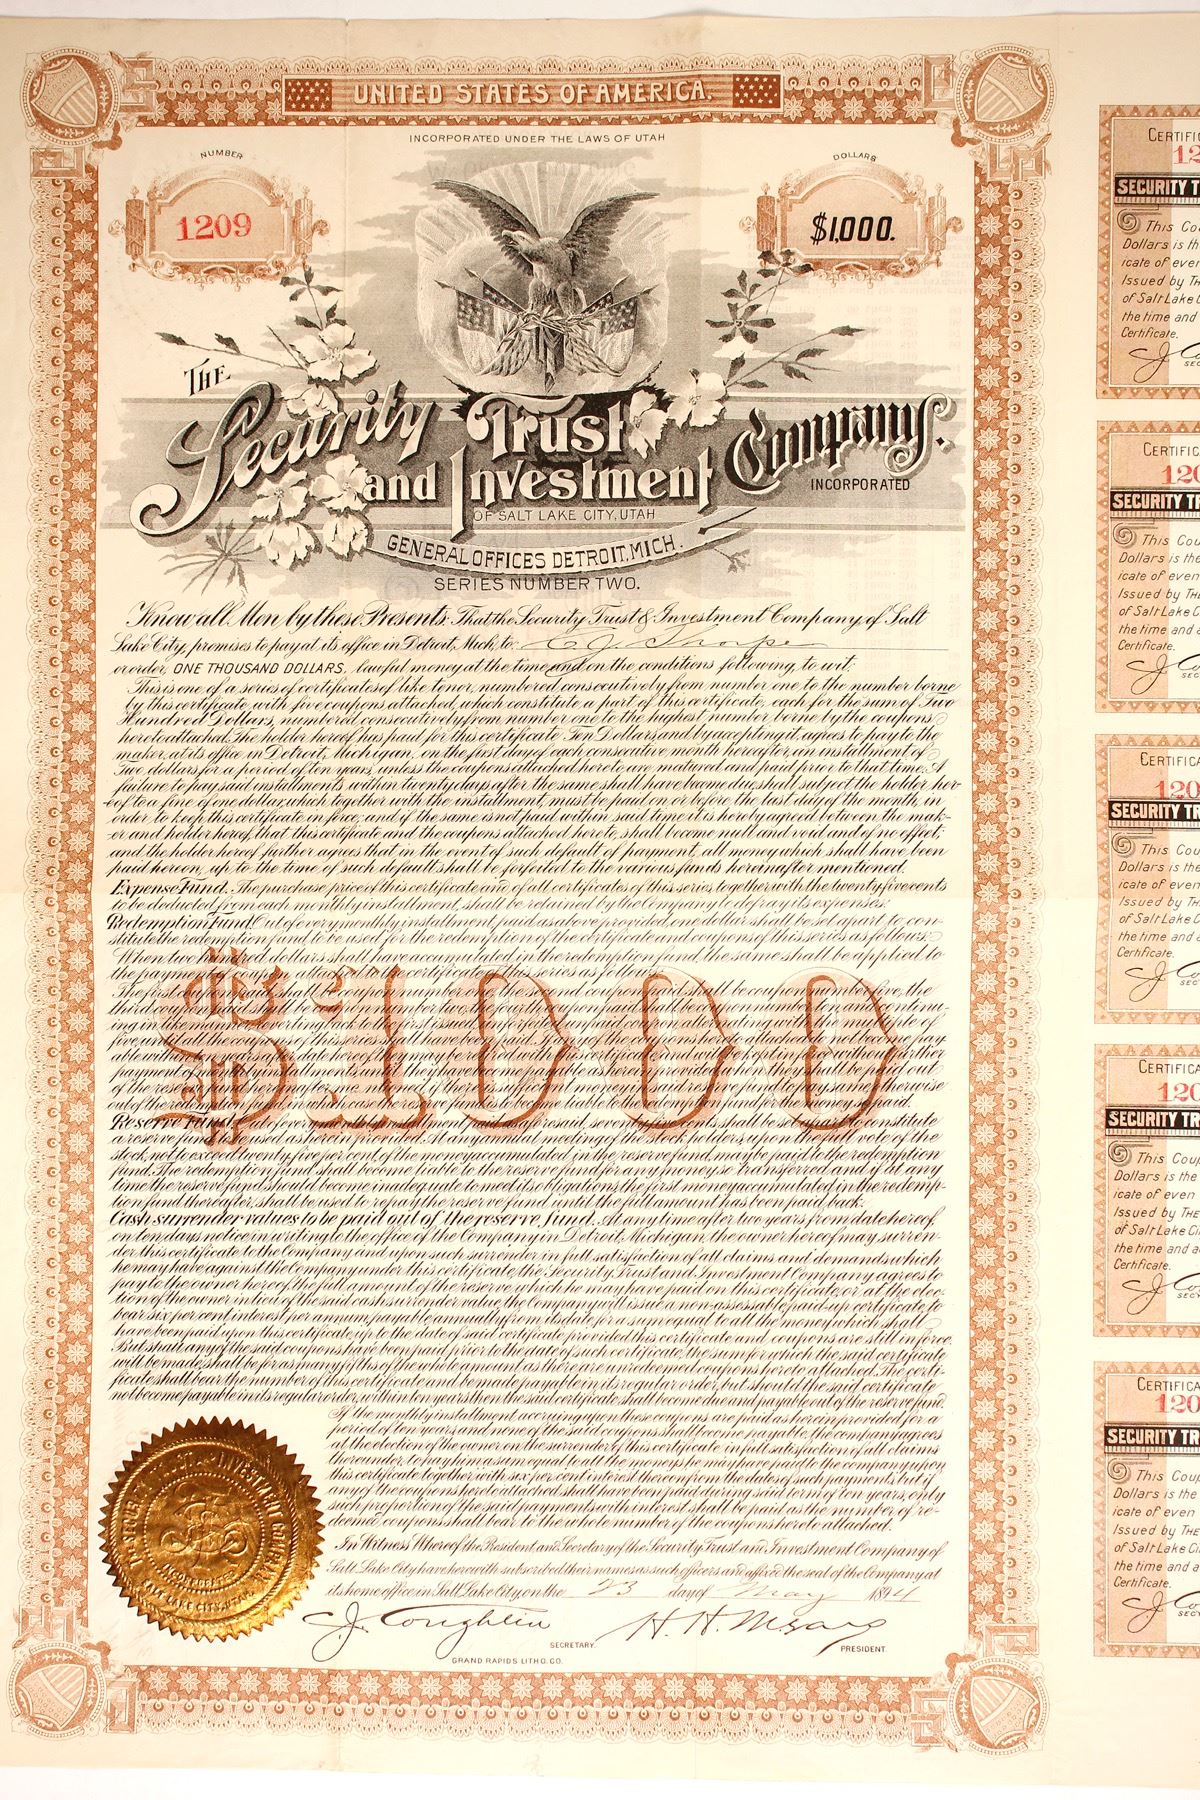 UNITED STATES OF AMERICA.
INCORPORATED UNDER THE LAWS OF UTAH
NUMBER
1209
DOLLARS
$1,000.
THE
Security Trust
and Investment
Company.
INCORPORATED
OF SALT LAKE CITY, UTAH
GENERAL OFFICES DETROIT, MICH.
SERIES NUMBER TWO.
Know all Men by these Presents: That the Security Trust & Investment Company, of Salt
Lake City, promises to pay at its office in Detroit, Mich, to: C. J. Thorpe
or order, ONE THOUSAND DOLLARS, lawful money at the time and on the conditions following, to wit:
This is one of a series of certificates of like tenor, numbered consecutively from number one to the number borne
by this certificate, with five coupons attached, which constitute a part of this certificate, each for the sum of Two
Hundred Dollars, numbered consecutively from number one to the highest number borne by the coupons
hereto attached. The holder hereof has paid for this certificate Ten Dollars and by accepting it, agrees to pay to the
maker, at its office in Detroit, Michigan, on the first day of each consecutive month hereafter an installment of
Two dollars for a period of ten years, unless the coupons attached hereto are matured and paid prior to that time. A
failure to pay said installments within twenty days after the same shall have become due, shall subject the holder her-
eof to a fine of one dollar, which together with the installment, must be paid on or before the last day of the month, in
order to keep this certificate in force; and if the same is not paid within said time it is hereby agreed between the mak-
er and holder hereof, that this certificate and the coupons attached hereto, shall become null and void and of no effect;
and the holder hereof further agrees that in the event of such default of payment, all money which shall have been
paid hereon, up to the time of such default shall be forfeited to the various funds hereinafter mentioned.
Expense Fund. The purchase price of this certificate and of all certificates of this series, together with the twenty five cents
to be deducted from each monthly installment, shall be retained by the Company to defray its expenses:
Redemption Fund. Out of every monthly installment, paid as above provided, one dollar shall be set apart to con-
stitute the redemption fund to be used for the redemption of the certificate and coupons of this series as follows:
When two hundred dollars shall have accumulated in the redemption fund, the same shall be applied to
the payment of coupon attached to the certificate of this series as follows:
The first coupon paid, shall be coupon number one, the second coupon paid shall be coupon number five, the
third coupon paid, shall be coupon number two, the fourth coupon paid shall be coupon number ten, and continu-
ing in like manner reverting back to the first issued, unforfeited, unpaid, coupon alternating with the multiple of
five, until all the coupons of this series shall have been paid. If any of the coupons hereto attached do not become pay-
able within ten years after date hereof, they may be retired with this certificate and will be kept in force without further
payment of monthly installments, until they have become payable as herein provided when they shall be paid out
of the reserve fund, hereinafter mentioned, if there is sufficient money in said reserve fund to pay same; otherwise
out of the redemption fund, in which case the reserve fund is to become liable to the redemption fund for the money so paid.
Reserve Fund. Out of every monthly installment paid as aforesaid, seventy five cents shall be set apart to constitute
a reserve fund to be used as herein provided. At any annual meeting of the stock holders, upon the full vote of the
stock, not to exceed twenty five per cent, of the money accumulated in the reserve fund, may be paid to the redemption
fund. The redemption fund shall become liable to the reserve fund for any money so transferred and if at any
time the reserve fund, should become inadequate to meet its obligations, the first money accumulated in the redemp-
tion fund thereafter, shall be used to repay the reserve fund until the full amount has been paid back.
Cash surrender values to be paid out of the reserve fund. At any time after two years from date hereof,
on ten days notice in writing to the office of the Company in Detroit, Michigan, the owner hereof may surren-
der this certificate to the Company and upon such surrender, in full satisfaction of all claims and demands which
he may have against the Company under this certificate, the Security Trust and Investment Company agrees to
pay to the owner hereof, the full amount of the reserve which he may have paid on this certificate, or at the elec-
tion of the owner in lieu of the said cash surrender value, the Company will issue a non-assessable paid-up certificate, to
bear six per cent interest per annum, payable annually from its date for a sum equal to all the money which shall
have been paid upon this certificate, up to the date of said certificate provided this certificate and coupons are still in force.
But shall any of the said coupons have been paid prior to the date of such certificate, the sum for which the said certificate
will be made, shall be for as many fifths of the whole amount as there are unredeemed coupons hereto attached. The certi-
ficate shall bear the number of this certificate and be made payable in its regular order, but should the said certificate
not become payable in its regular order, within ten years then the said certificate shall become due and payable out of the reserve fund.
If the monthly installment accruing upon these coupons are paid as herein provided for a
period of ten years and none of the said coupons shall become payable, the company agrees
at the election of the owner on the surrender of this certificate in full satisfaction of all claims
thereunder, to pay him a sum equal to all the money he may have paid to the company upon
this certificate together with six per cent interest thereon from the dates of such payments, but if
any of the coupons hereto attached shall have been paid during said term of ten years, only
such proportion of the said payments with interest shall be paid as the number of re-
deemed coupons shall bear to the whole number of the coupons hereto attached.
In Witness Whereof the President and Secretary of the Security Trust and Investment Company of
Salt Lake City have herewith subscribed their names as such officers and affixed the seal of the Company at
its home office in Salt Lake City on the 23 day of May 1894
J. Coughlin
SECRETARY.
PRESIDENT
GRAND RAPIDS LITHO. CO.
$1000
THE SECURITY TRUST AND INVESTMENT COMPANY
INCORPORATED
SALT LAKE CITY, UTAH.
CERTIFIC
12
SECURITY T
This Co
Dollars is th
icate of ever
Issued by TH
of Salt Lake C
the time and
Certificate.
J. Co
SEC
CERTIFIC
120
SECURITY TR
This Cou
Dollars is the
icate of even
Issued by THE
of Salt Lake C
the time and a
Certificate.
J. Co
SEC
CERTIFICA
120
SECURITY TR
This Cou
Dollars is the
icate of even
Issued by TH
of Salt Lake C
the time and a
Certificate.
J. Co
CERTIFICA
120
SECURITY TR
This Coup
Dollars is the
icate of even
Issued by THE
of Salt Lake Ci
the time and a
Certificate.
J. Co
SEC'Y
CERTIFICA
120
SECURITY TR
This Cou
Dollars is the
icate of even
Issued by THE
of Salt Lake Ci
the time and a
Certificate.
J. Co
SECY